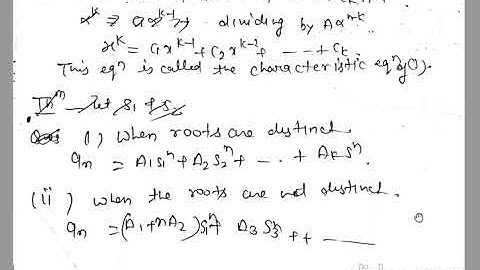 dividing by Aα^{n-k}
x^k = C₁x^{k-1} + C₂x^{k-2} + ---- + C_k.
This eqⁿ is called the characteristic eqⁿ of (1).
let S₁ & S₂
(i) when roots are distinct.
a_n = A₁S₁ⁿ + A₂S₂ⁿ + -- . + A_kSⁿ.
(ii) when the roots are not distinct.
a_n = (A₁+nA₂)S₁ⁿ + A₃S₃ⁿ + + ——